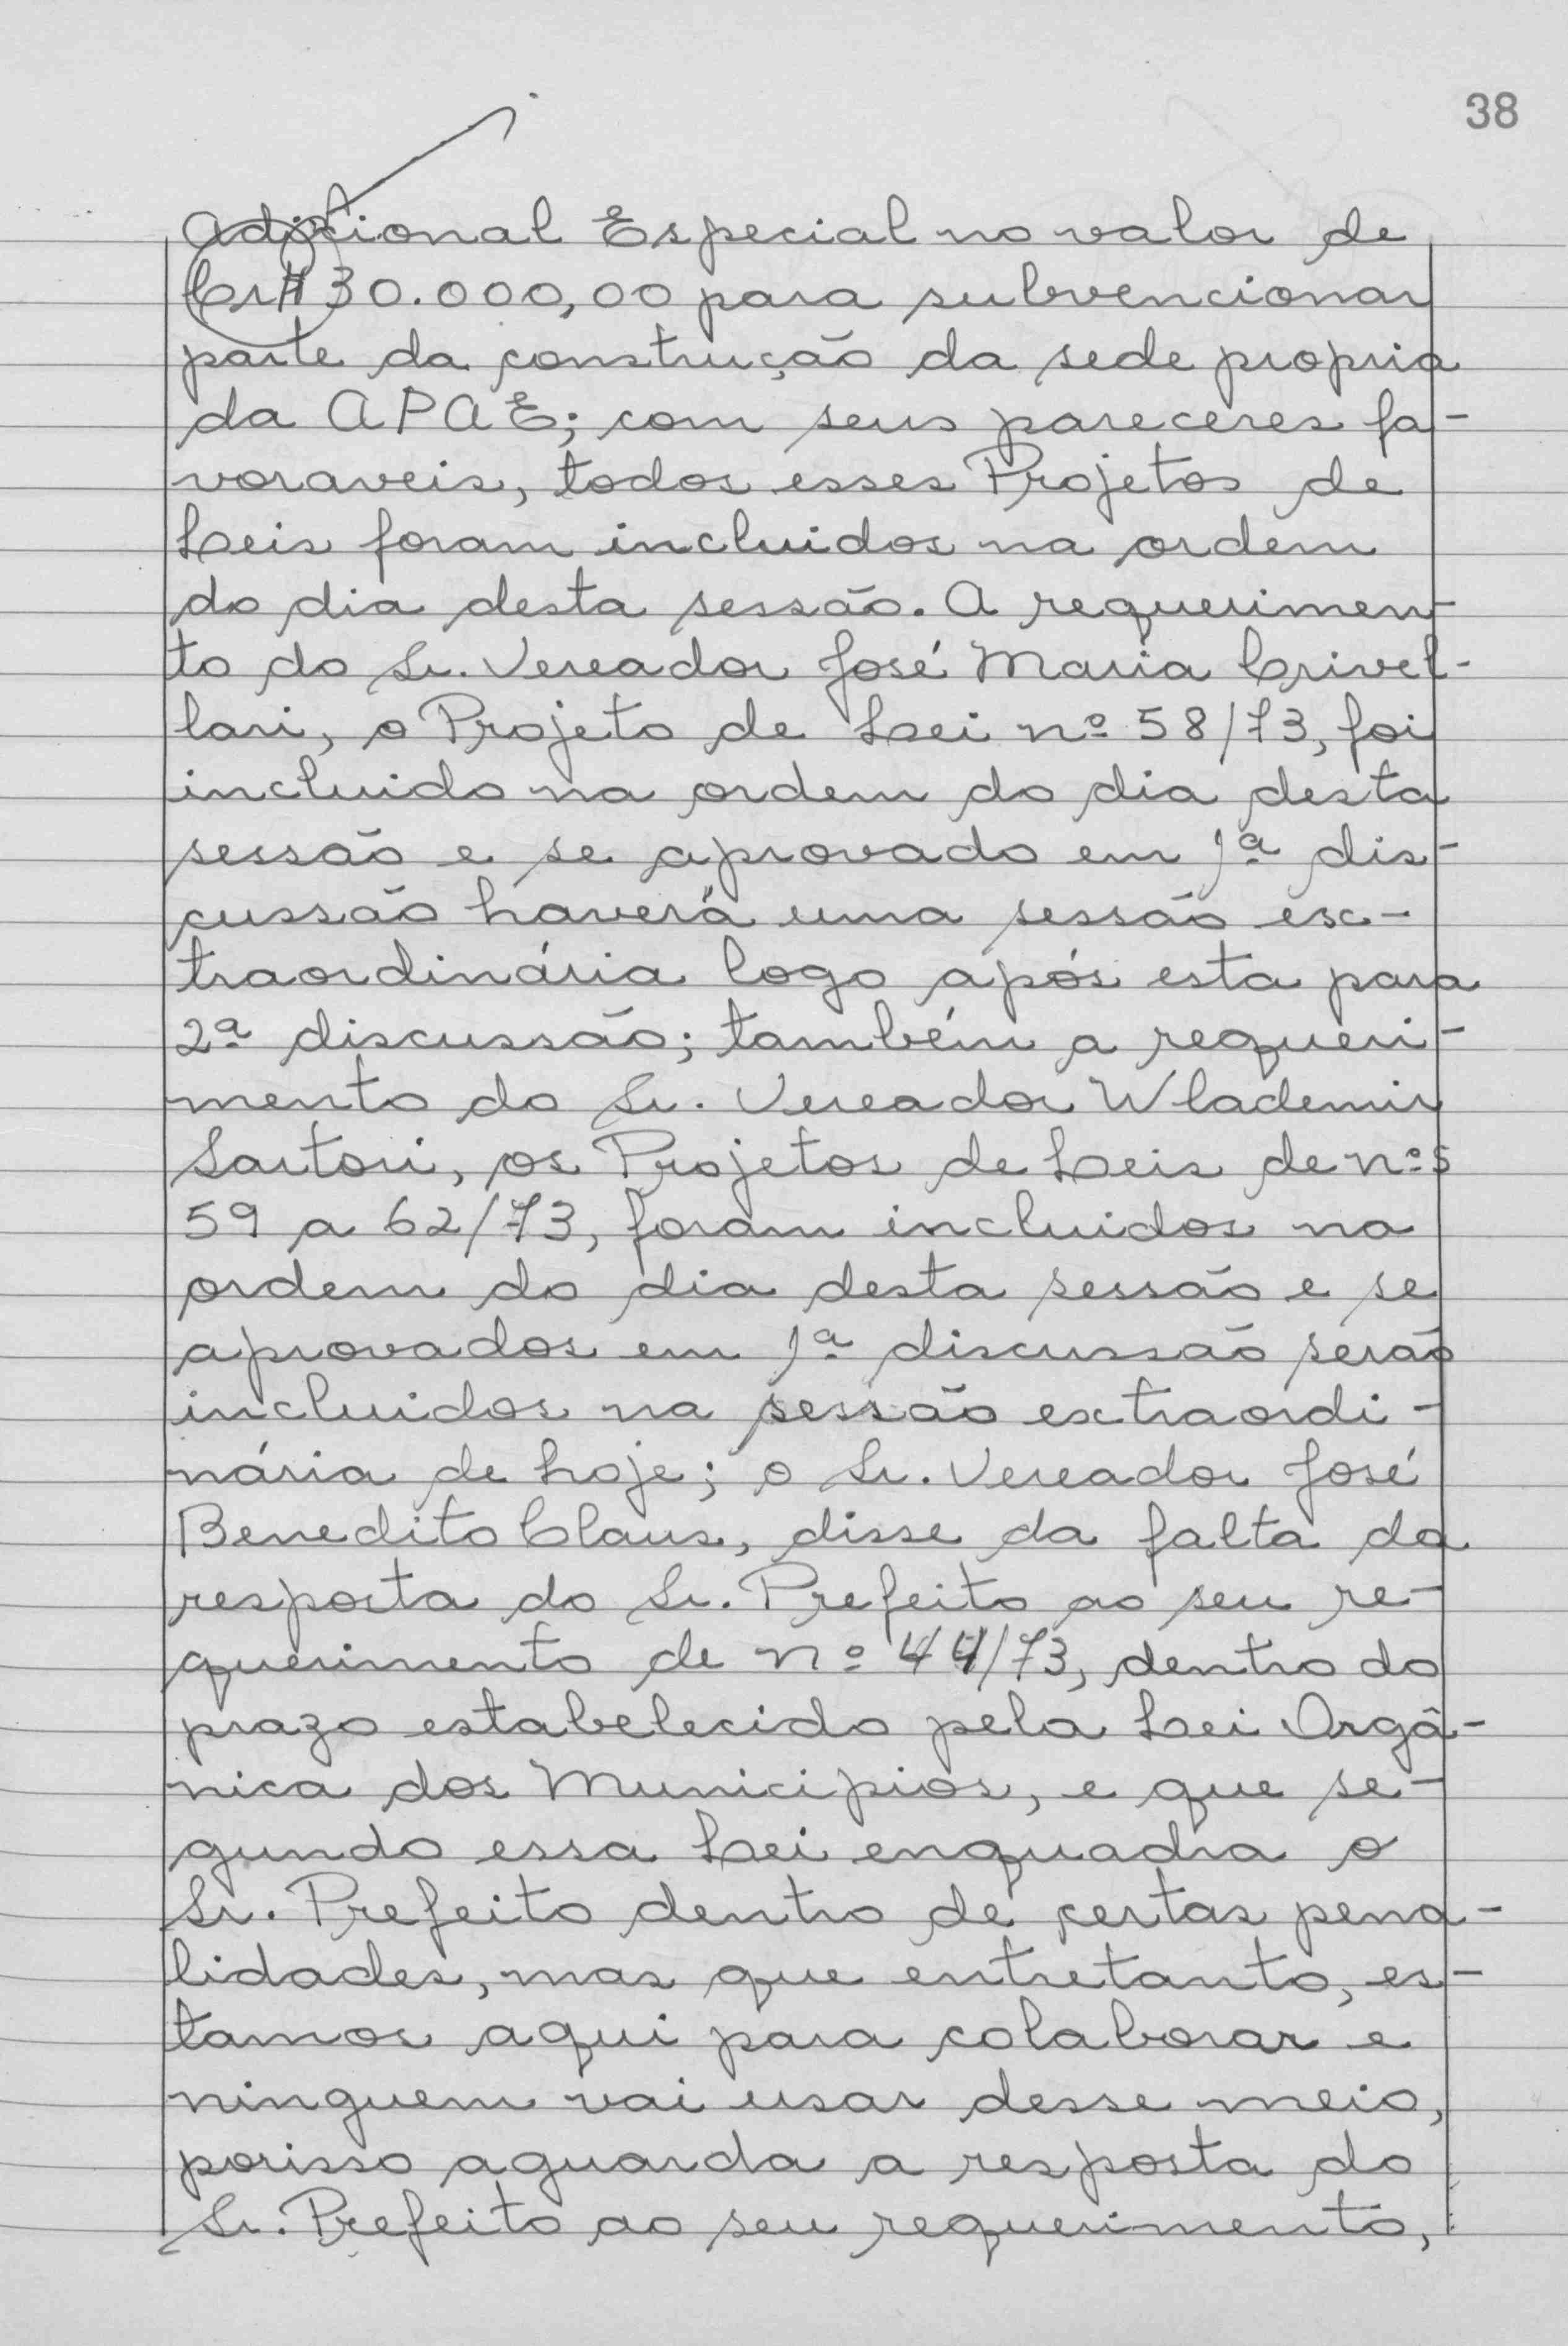 38
Adicional Especial no valor de
Cr$ 30.000,00 para subvencionar
parte da construção da sede propria
da APAE; com seus pareceres fa-
voraveis, todos esses Projetos de
Leis foram incluidos na ordem
do dia desta sessão. A requerimen-
to do Sr. Vereador José Maria Crivel-
lari, o Projeto de Lei nº 58/73, foi
incluido na ordem do dia desta
sessão e se aprovado em 1ª dis-
cussão haverá uma sessão ex-
traordinária logo após esta para
2ª discussão; também a requeri-
mento do Sr. Vereador Wlademir
Sartori, os Projetos de Leis de nºs
59 a 62/73, foram incluidos na
ordem do dia desta sessão e se
aprovados em 1ª discussão serão
incluidos na sessão extraordi-
nária de hoje; o Sr. Vereador José
Benedito Claus, disse da falta da
resposta do Sr. Prefeito ao seu re-
querimento de nº 44/73, dentro do
prazo estabelecido pela Lei Orgâ-
nica dos Municipios, e que se-
gundo essa Lei enquadra o
Sr. Prefeito dentro de certas pena-
lidades, mas que entretanto, es-
tamos aqui para colaborar e
ninguem vai usar desse meio,
porisso aguarda a resposta do
Sr. Prefeito ao seu requerimento,